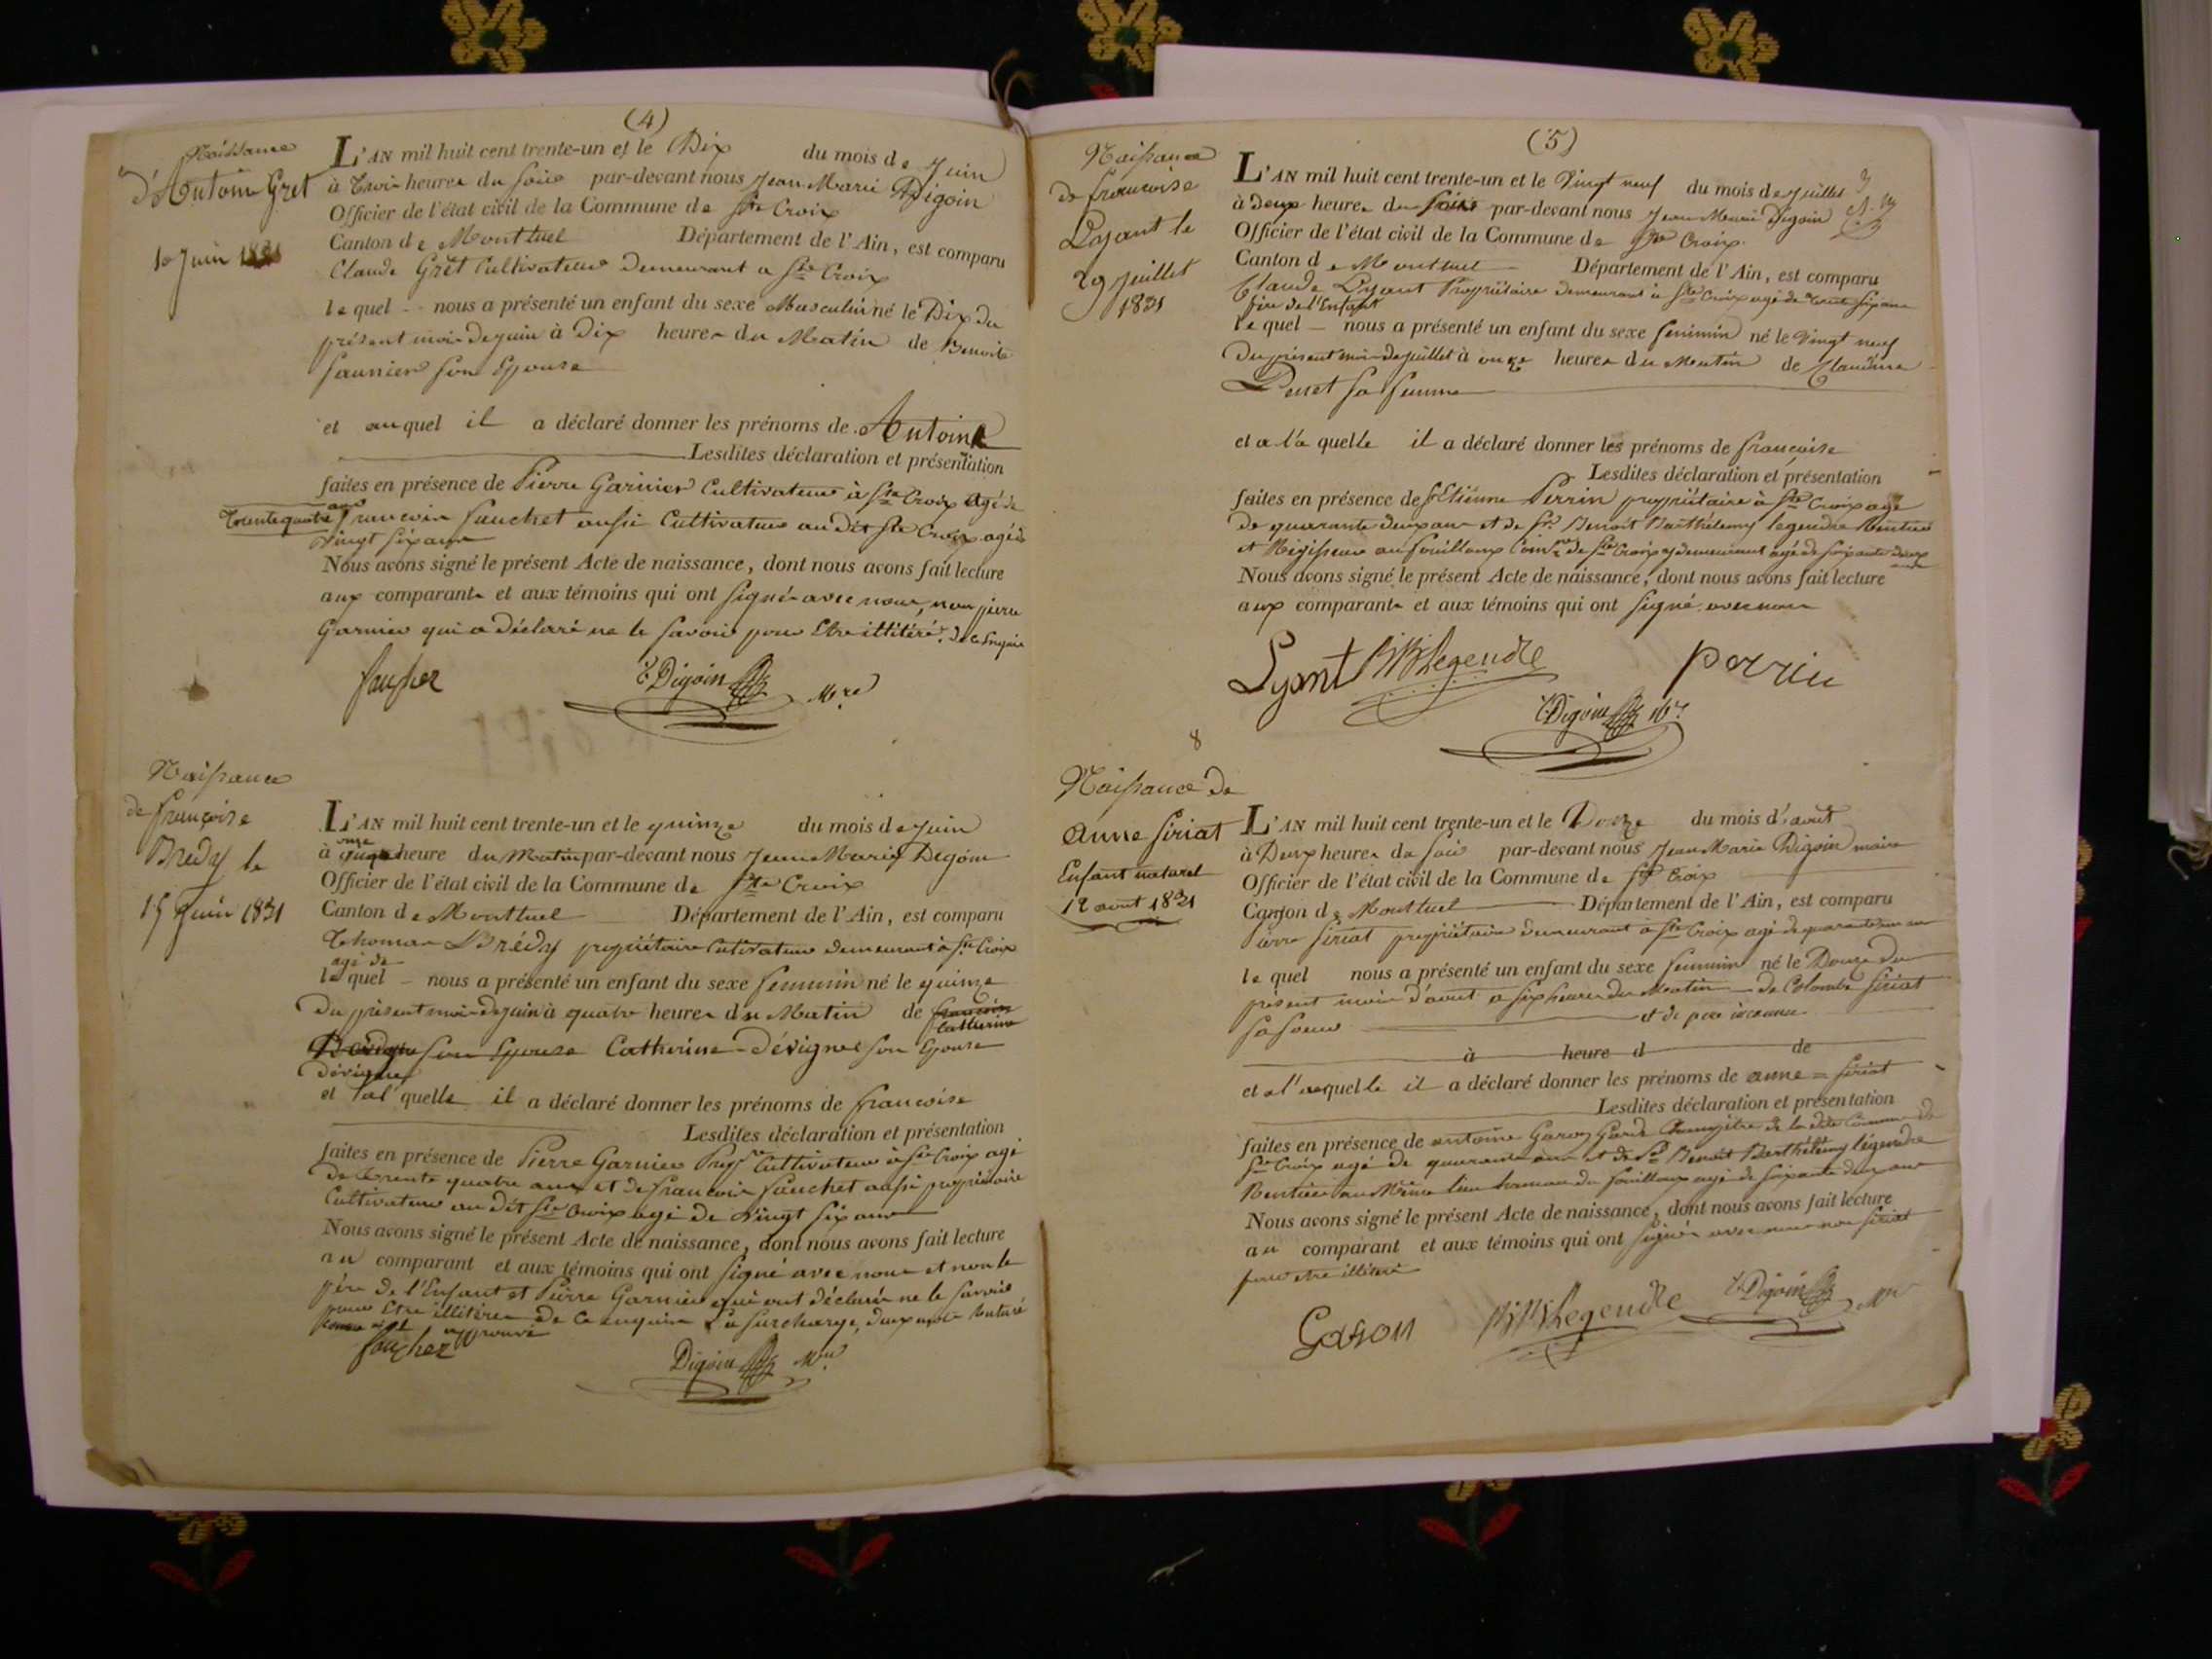 (4)
Naissance
d'Antoine Gret
10 Juin 1831
L'AN mil huit cent trente-un et le Dix du mois de Juin
à Trois heures du soir par-devant nous Jean Marie Digoin
Officier de l'état civil de la Commune de Ste Croix
Canton de Montluel Département de l'Ain, est comparu
Claude Gret Cultivateur demeurant a Ste Croix
lequel - nous a présenté un enfant du sexe Masculin né le Dix du
présent mois de juin à Dix heures du Matin de Benoite
Saunier son Epouse
et auquel il a déclaré donner les prénoms de Antoine
Lesdites déclaration et présentation
faites en présence de Pierre Garnier Cultivateur à Ste Croix Agé de
Trente quatre ans francois fauchet aussi Cultivateur au dit Ste Croix agé de
Vingt six ans
Nous avons signé le présent Acte de naissance, dont nous avons fait lecture
aux comparants et aux témoins qui ont signé avec nous, non pierre
Garnier qui a déclaré ne le savoir pour Etre illitéré. de ce Enquis
faucher Digoin Mre
Naissance
de françoise
Bredy le
15 Juin 1831
L'AN mil huit cent trente-un et le quinze du mois de Juin
à onze heure du Matin par-devant nous Jean Marie Digoin
Officier de l'état civil de la Commune de Ste Croix
Canton de Montluel Département de l'Ain, est comparu
Thomas Brédy propriétaire Cultivateur demeurant à Ste Croix
agé de
lequel - nous a présenté un enfant du sexe feminin né le quinze
du présent mois de juin à quatre heures du Matin de francoise
Catherine
son Epouse Catherine Dévigne son Epouse
Dévigne
et a laquelle il a déclaré donner les prénoms de francoise
Lesdites déclaration et présentation
faites en présence de Pierre Garnier Propre Cultivateur à Ste Croix agé
de trente quatre ans et de francois fauchet aussi propriétaire
Cultivateur au dit Ste Croix agé de Vingt six ans
Nous avons signé le présent Acte de naissance, dont nous avons fait lecture
au comparant et aux témoins qui ont signé avec nous et non le
père de l'Enfant et Pierre Garnier qui ont déclaré ne le savoir
pour Etre illitérés de ce enquis La surcharge, deux mots
approuvé
faucher Digoin Mre
(5)
Naissance
de francoise
Lyant le
29 Juillet
1831
L'AN mil huit cent trente-un et le Vingt neuf du mois de Juillet
à deux heures du soir par-devant nous Jean Marie Digoin
Officier de l'état civil de la Commune de Ste Croix
Canton de Montluel Département de l'Ain, est comparu
Claude Lyant Propriétaire demeurant à Ste Croix agé de trente six ans
père de l'Enfant
lequel - nous a présenté un enfant du sexe feminin né le Vingt neuf
du présent mois de Juillet à onze heures du Matin de Claudine
Penet sa femme
et a laquelle il a déclaré donner les prénoms de francoise
Lesdites déclaration et présentation
faites en présence de Sr Etienne Perrin propriétaire à Ste Croix agé
de quarante deux ans et de Sr Benoit Barthélemy legendre Rentier
et Régisseur au fouilloux de Ste Croix y demeurant agé de soixante deux
ans
Nous avons signé le présent Acte de naissance, dont nous avons fait lecture
aux comparants et aux témoins qui ont signé avec nous
Lyant BBLegendre perrin
Digoin Mre
8
Naissance de
anne siriat
Enfant naturel
12 aout 1831
L'AN mil huit cent trente-un et le Douze du mois d'août
à Deux heures du soir par-devant nous Jean Marie Digoin maire
Officier de l'état civil de la Commune de Ste Croix
Canton de Montluel Département de l'Ain, est comparu
Pierre siriat propriétaire demeurant à Ste Croix agé de quarante
lequel nous a présenté un enfant du sexe feminin né le Douze du
présent mois d'aout a six heures du Matin de Colombe siriat
sa soeur et de père inconnu
à heure d de
et a laquelle il a déclaré donner les prénoms de anne = siriat
Lesdites déclaration et présentation
faites en présence de antoine Garon Garde Champêtre de la dite Commune de
Ste Croix agé de quarante ans et de Sr Benoit Barthélemy légendre
Rentier au Même lieu hameau du fouilloux agé de soixante deux ans
Nous avons signé le présent Acte de naissance, dont nous avons fait lecture
au comparant et aux témoins qui ont signés avec nous non siriat
pour etre illitéré
Garon BBLegendre Digoin Mre